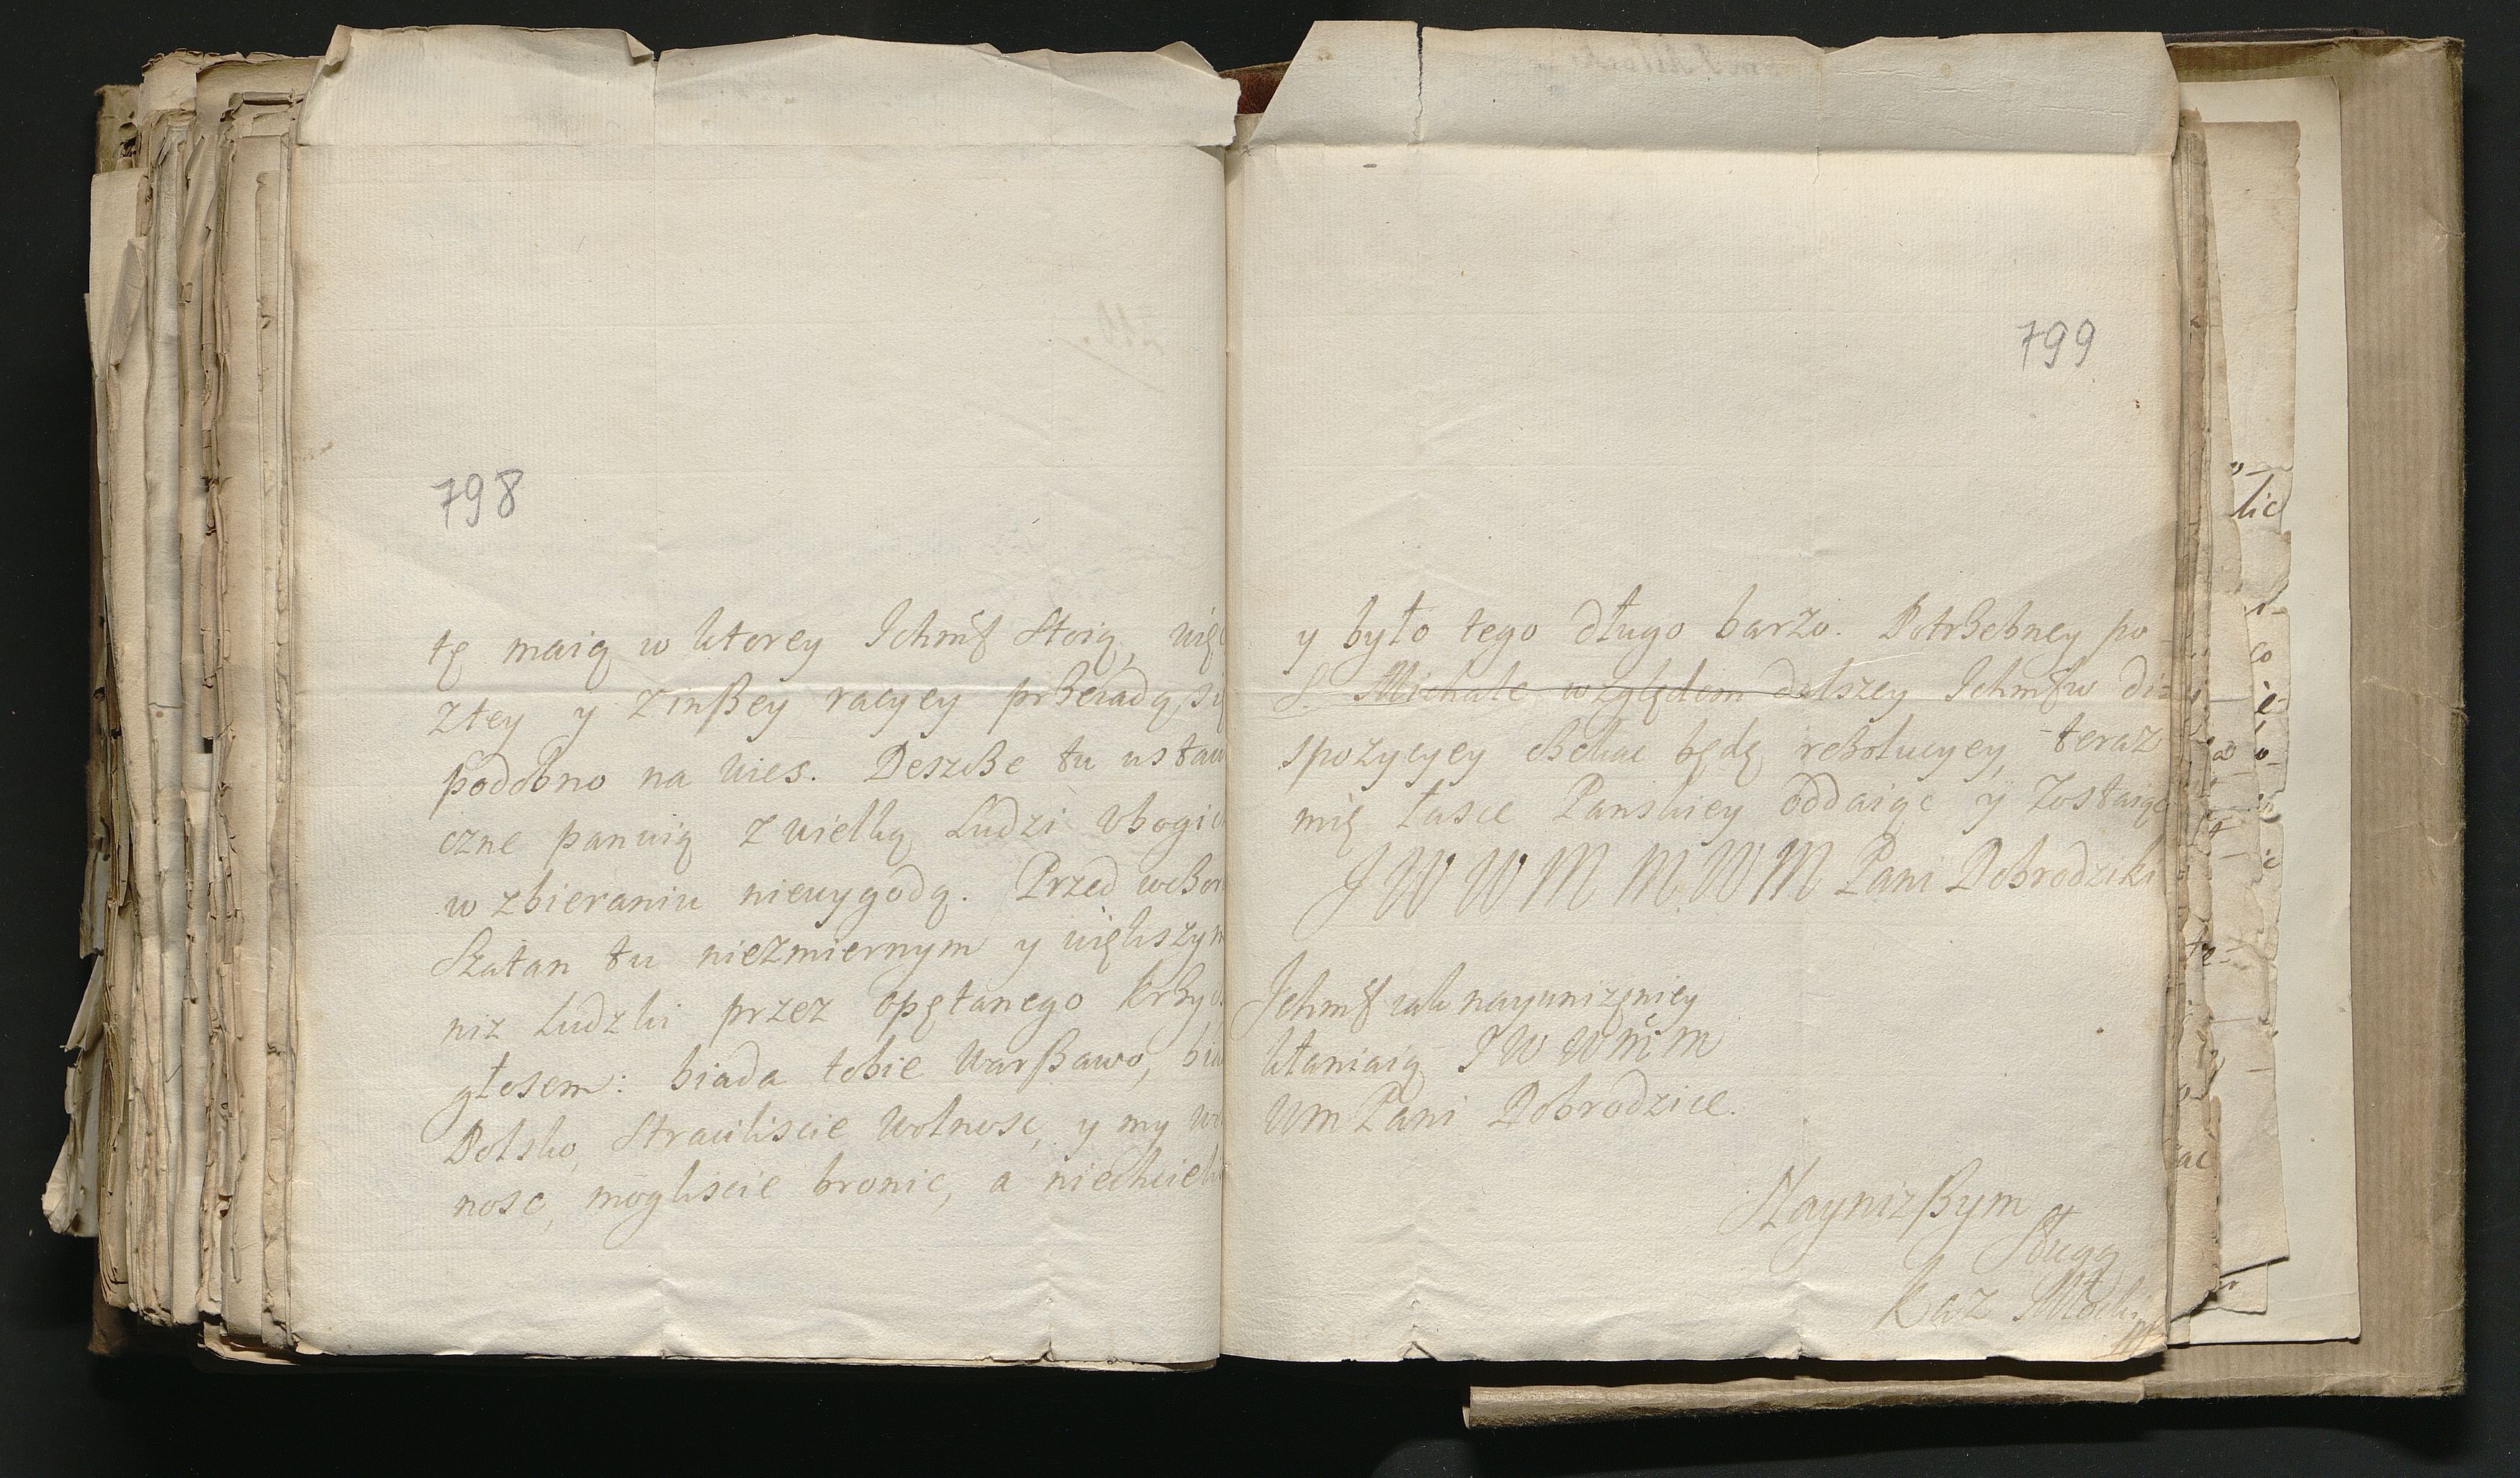 798
tę maią w ktorey Ichmść Stoią, więc
z tey y z inßey racyey przeiadą się
podobno na wies. Deszcze tu ustaw
czne panuią z wielką Ludzi vbogich
w zbieraniu niewygodą. Przed wczor
Szatan tu niezmiernym y większym
niz Ludzki przez opętanego krzy
głosem: biada tobie Warßawo, bia
Polsko, Straciliscie Wolnosc, y my wo
nosc, mogliscie bronic, a niechcieli
799
y było tego długo barzo. Potrzebney po
S. Michale względem dalszey Ichmśćw di
spozycyey czekac będę rezolucyey, teraz
mię łasce Panskiey oddaiąc y zostaiąc
J W W M M W M Pani Dobrodziki
Ichmść iak nayunizęniey
kłaniaią J W W M M
WM Pani Dobrodzice.
Nayniżßym
Sługą
Kaz Młocki